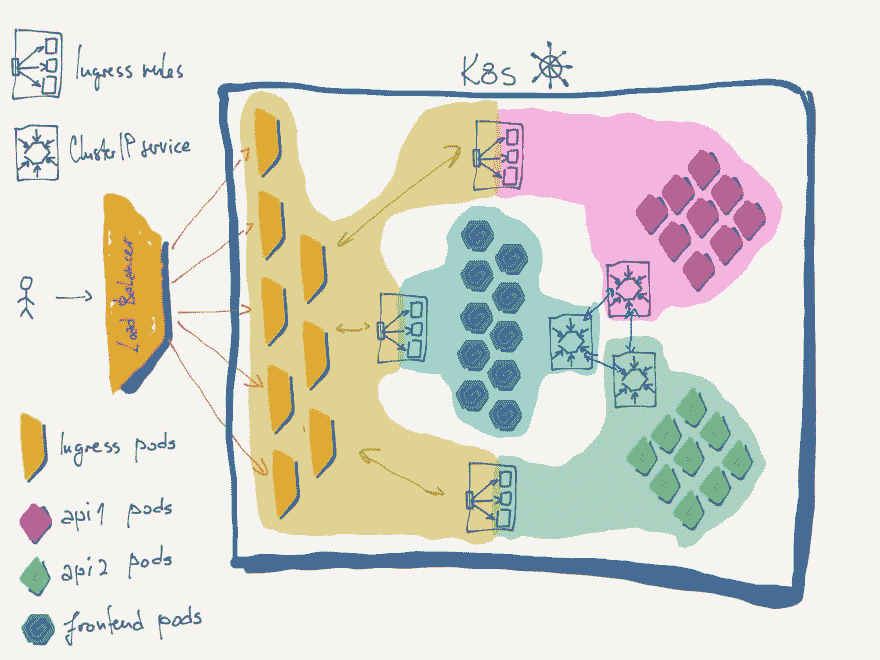 Ingress rules
K8s
ClusterIP service
Load Balancer
Ingress pods
api1 pods
api2 pods
frontend pods